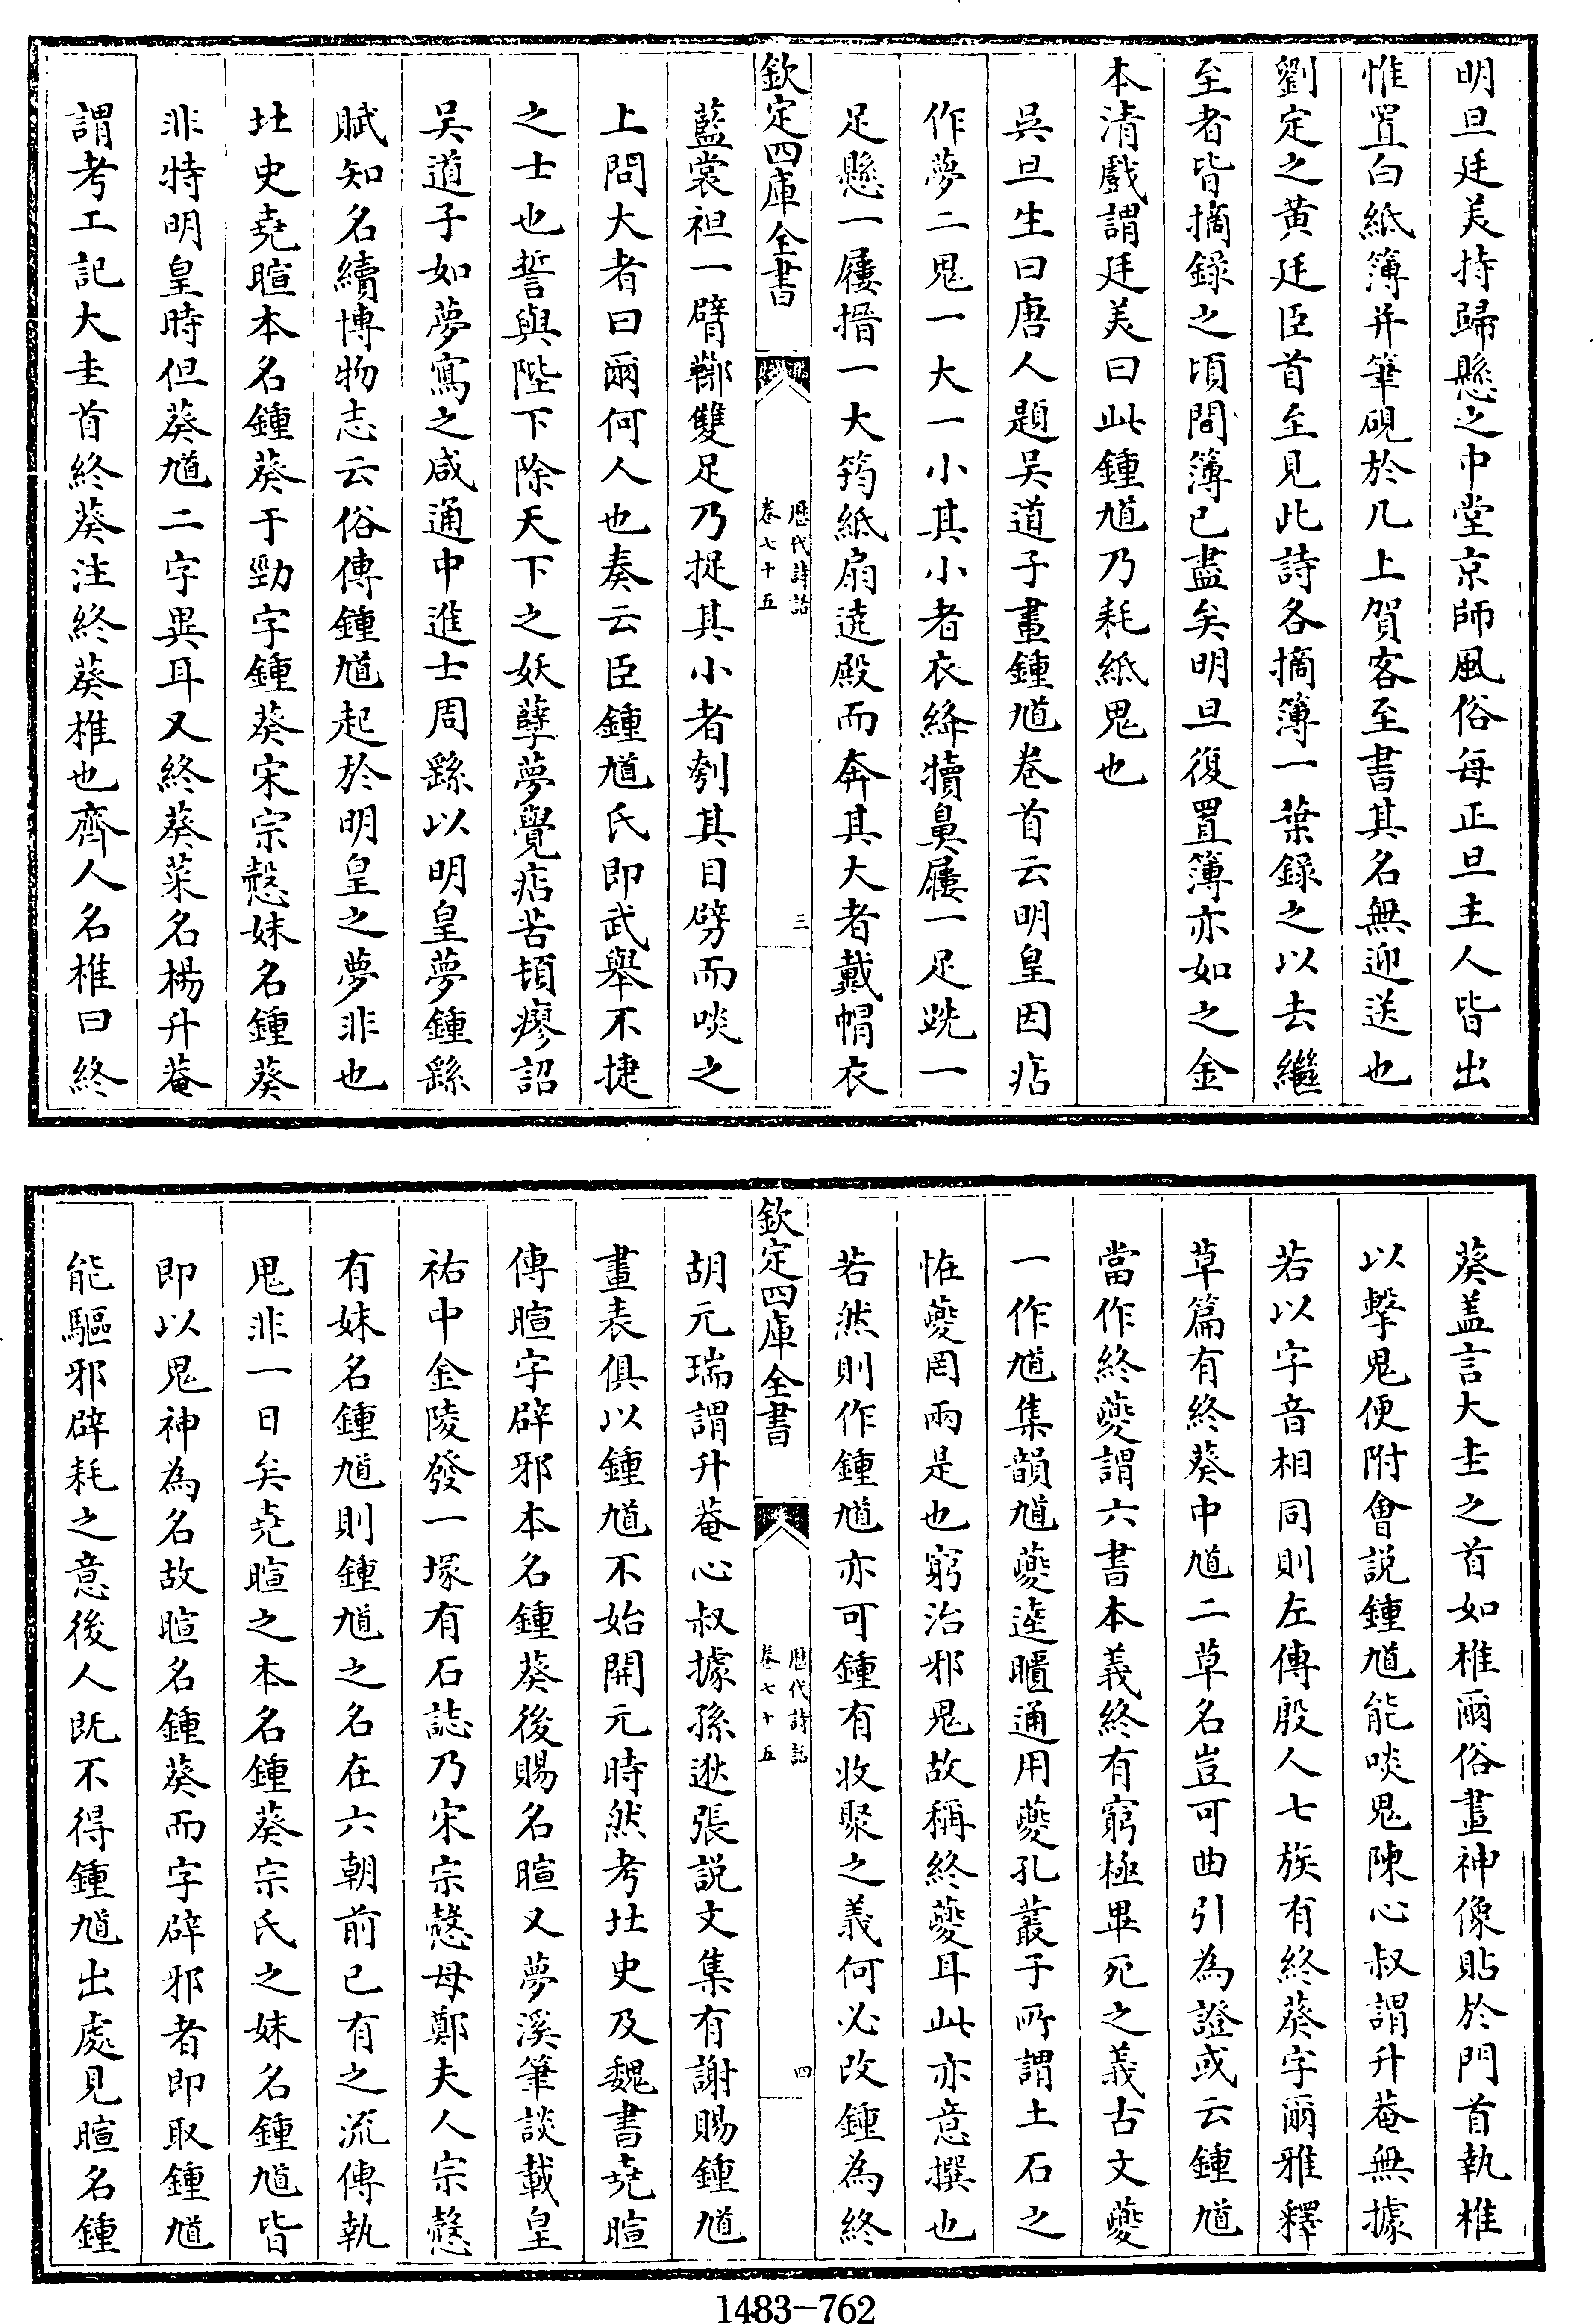 明旦廷美持歸懸之中堂京師風俗每正旦主人皆出
惟置白紙簿并筆硯於几上賀客至書其名無迎送也
劉定之黄廷臣首至見此詩各摘簿一葉錄之以去繼
至者皆摘錄之頃間簿已盡矣明旦復置簿亦如之金
本清戲謂廷美曰此鍾馗乃耗紙鬼也
吳旦生曰唐人題吳道子畫鍾馗卷首云明皇因痁
作夢二鬼一大一小其小者衣絳犢鼻屨一足跣一
足懸一屨搢一大筠紙扇遶殿而奔其大者戴帽衣
欽定四庫全書
歷代詩話
卷七十五
三
藍裳袒一臂鞹雙足乃捉其小者刳其目劈而啖之
上問大者曰爾何人也奏云臣鍾馗氏即武舉不捷
之士也誓與陛下除天下之妖孽夢覺痁苦頓瘳詔
吴道子如夢寫之咸通中進士周繇以明皇夢鍾繇
賦知名續博物志云俗傳鍾馗起於明皇之夢非也
北史堯暄本名鍾葵于勁字鍾葵宋宗慤妹名鍾葵
非特明皇時但葵馗二字異耳又終葵菜名楊升菴
謂考工記大圭首終葵注終葵椎也齊人名椎曰終
葵盖言大圭之首如椎爾俗畫神像貼於門首執椎
以擊鬼便附會説鍾馗能啖鬼陳心叔謂升菴無據
若以字音相同則左傳殷人七族有終葵字爾雅釋
草篇有終葵中馗二草名豈可曲引為證或云鍾馗
當作終夔謂六書本義終有窮極畢死之義古文夔
一作馗集韻馗夔逵頄通用夔孔叢子所謂土石之
恠夔罔兩是也窮治邪鬼故稱終夔耳此亦意撰也
若然則作鍾馗亦可鍾有收聚之義何必改鍾為終
欽定四庫全書
歷代詩話
卷七十五
四
胡元瑞謂升菴心叔據孫逖張説文集有謝賜鍾馗
畫表俱以鍾馗不始開元時然考北史及魏書堯暄
傳暄字辟邪本名鍾葵後賜名暄又夢溪筆談載皇
祐中金陵發一塚有石誌乃宋宗慤母鄭夫人宗慤
有妹名鍾馗則鍾馗之名在六朝前已有之流傳執
鬼非一日矣堯暄之本名鍾葵宗氏之妹名鍾馗皆
即以鬼神為名故暄名鍾葵而字辟邪者即取鍾馗
能驅邪辟耗之意後人既不得鍾馗出處見暄名鍾
1483-762